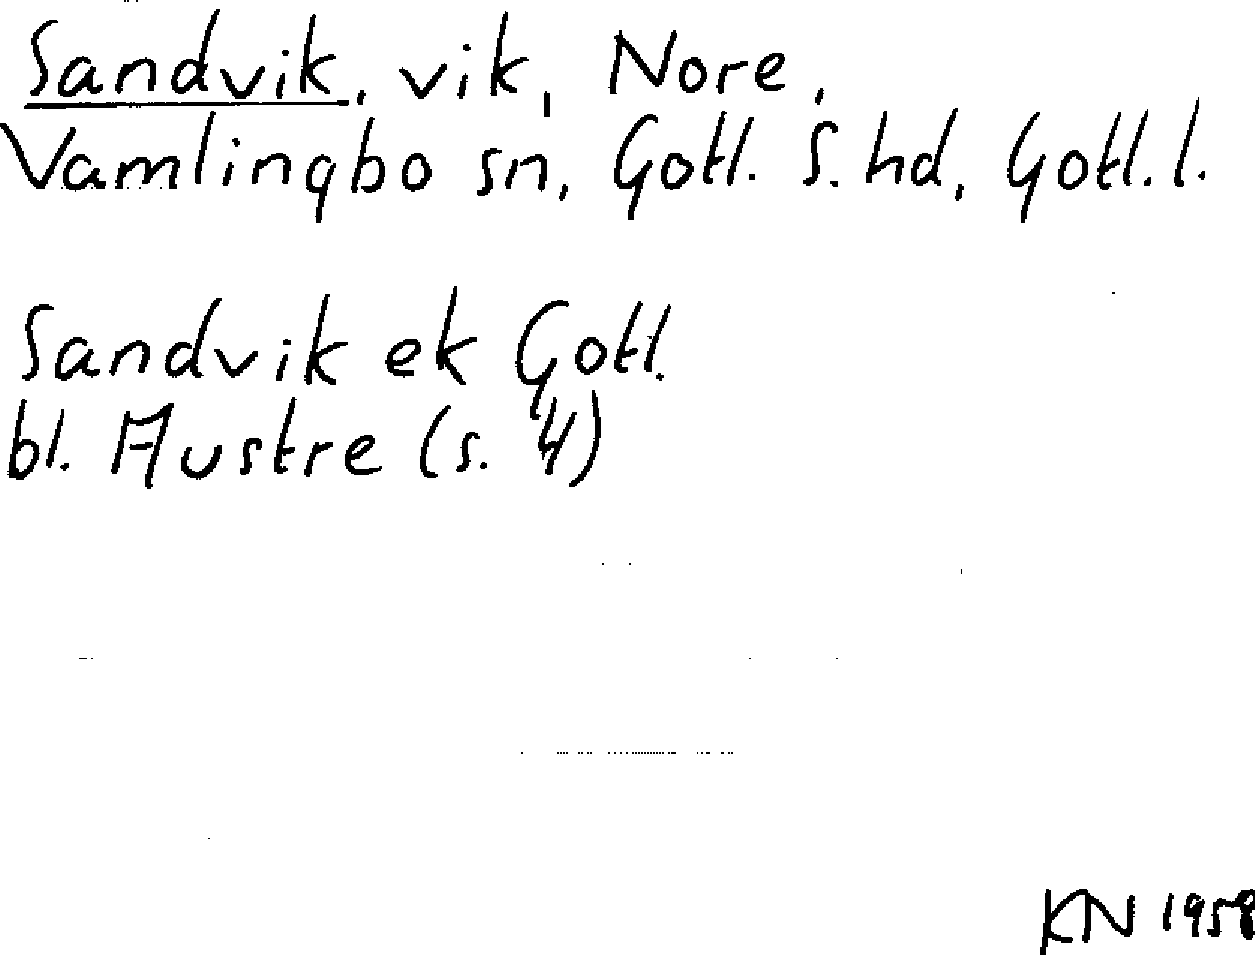 Sandvik, vik, Nore,
Vamlingbo sn, Gotl. S. hd, Gotl. l.
Sandvik ek Gotl.
bl. Austre (s. 4)
KN 1958